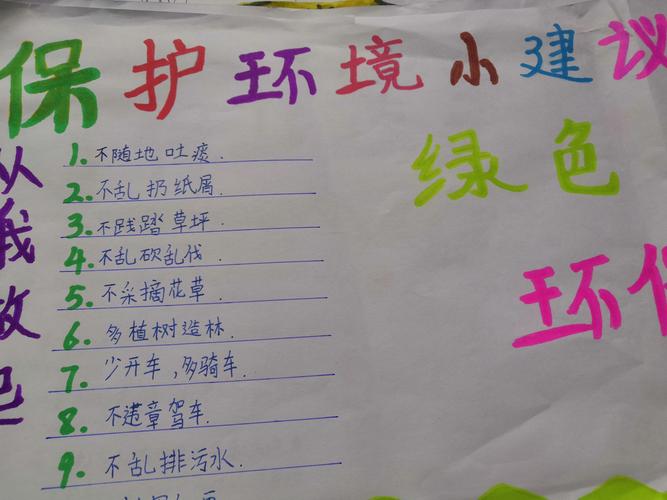 保护环境小建议
从我做起
1. 不随地吐痰.
2. 不乱扔纸屑.
3. 不践踏草坪.
4. 不乱砍乱伐.
5. 不采摘花草.
6. 多植树造林.
7. 少开车,多骑车.
8. 不违章驾车.
9. 不乱排污水.
绿色
环保